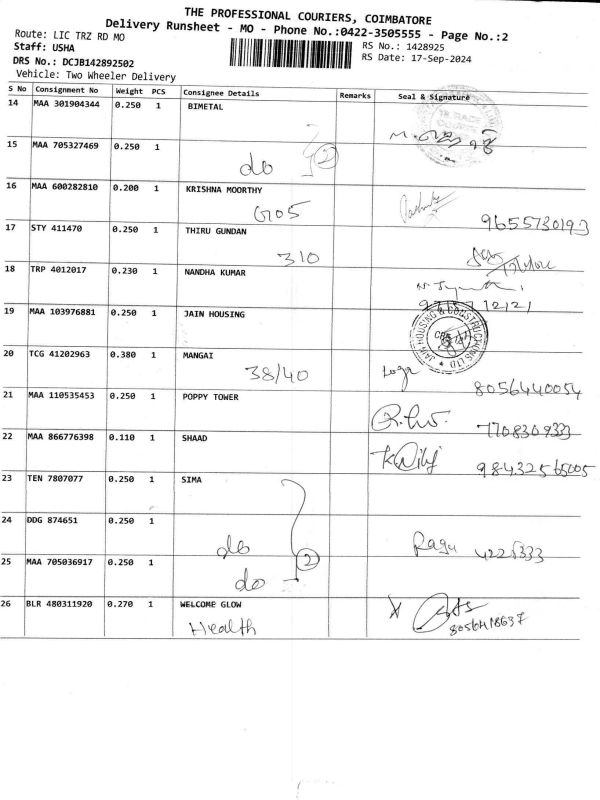 THE PROFESSIONAL COURIERS, COIMBATORE
Delivery Runsheet - MO - Phone No.:0422-3505555 - Page No.:2
Route: LIC TRZ RD MO
RS No.: 1428925
Staff: USHA
RS Date: 17-Sep-2024
DRS No.: DCJB142892502
Vehicle: Two Wheeler Delivery
S No Consignment No Weight PCS Consignee Details Remarks Seal & Signature
14 MAA 301904344 0.250 1 BIMETAL
15 MAA 705327469 0.250 1
do 2
16 MAA 600282810 0.200 1 KRISHNA MOORTHY
G05 9655730193
17 STY 411470 0.250 1 THIRU GUNDAN
310
18 TRP 4012017 0.230 1 NANDHA KUMAR
19 MAA 103976881 0.250 1 JAIN HOUSING
JAIN HOUSING & CONSTRUCTIONS LTD
20 TCG 41202963 0.380 1 MANGAI
38/40 Loga 8056440054
21 MAA 110535453 0.250 1 POPPY TOWER
7708309333
22 MAA 866776398 0.110 1 SHAAD
23 TEN 7807077 0.250 1 SIMA
24 DDG 874651 0.250 1
do Ragu
25 MAA 705036917 0.250 1
do 2
26 BLR 480311920 0.270 1 WELCOME GLOW
Health